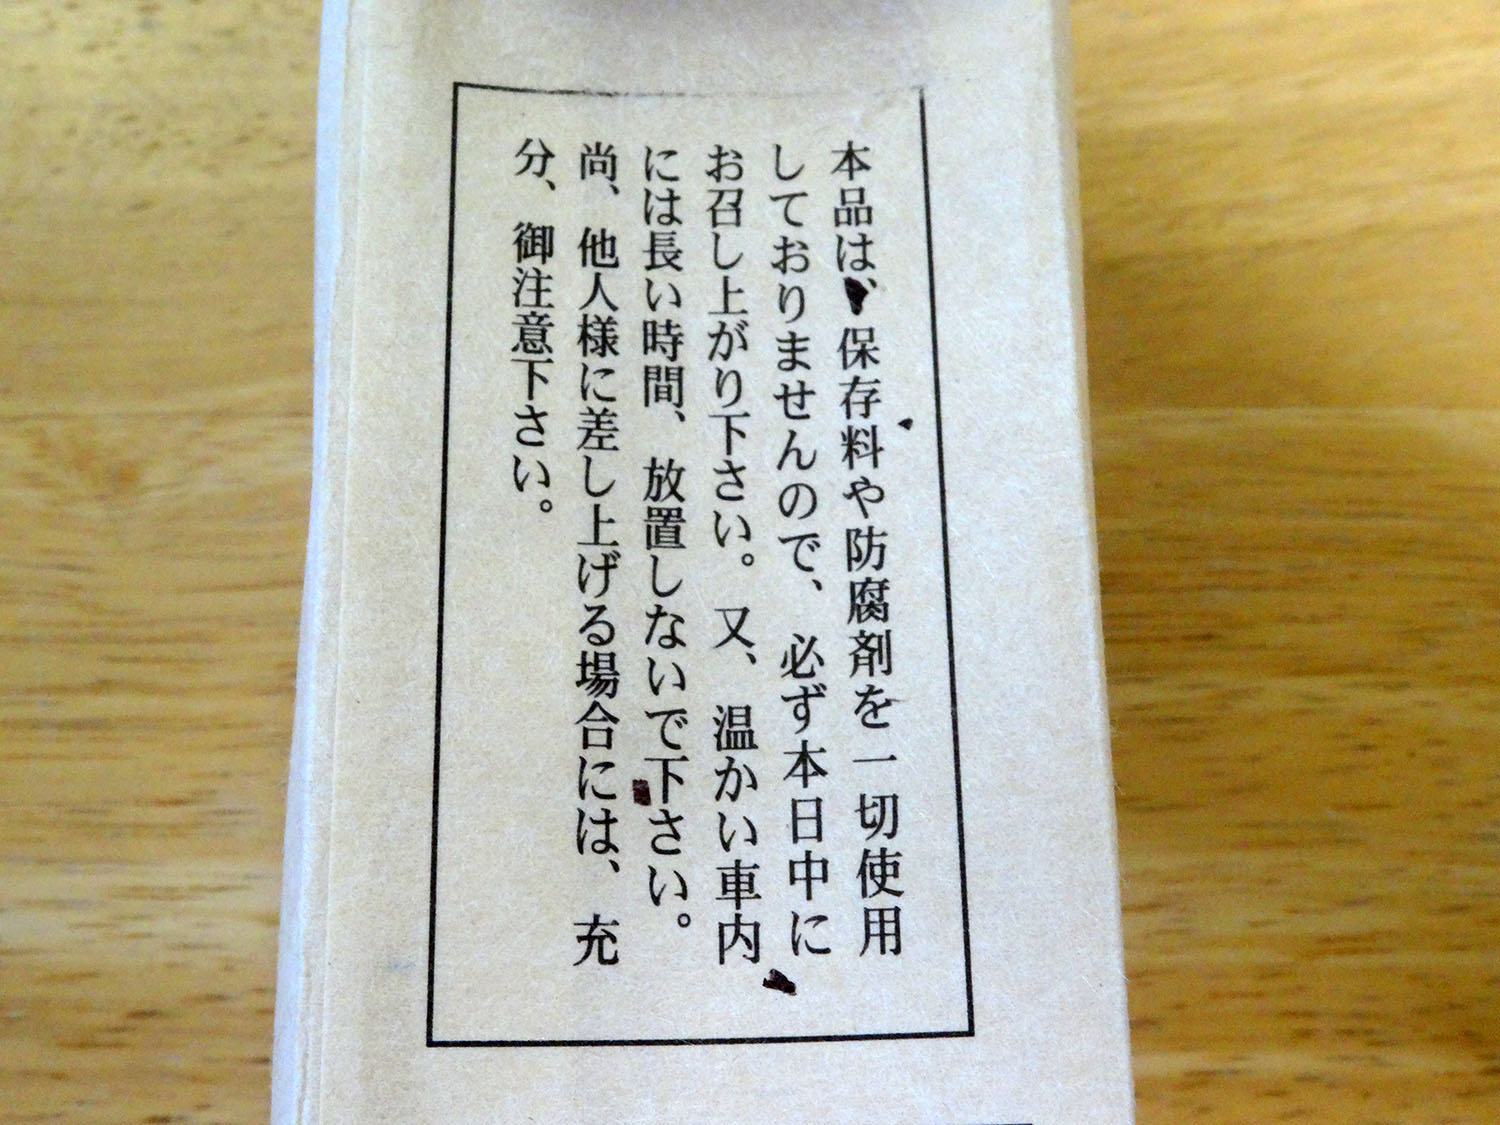 本品は、保存料や防腐剤を一切使用
しておりませんので、必ず本日中に
お召し上がり下さい。又、温かい車内
には長い時間、放置しないで下さい。
尚、他人様に差し上げる場合には、充
分、御注意下さい。